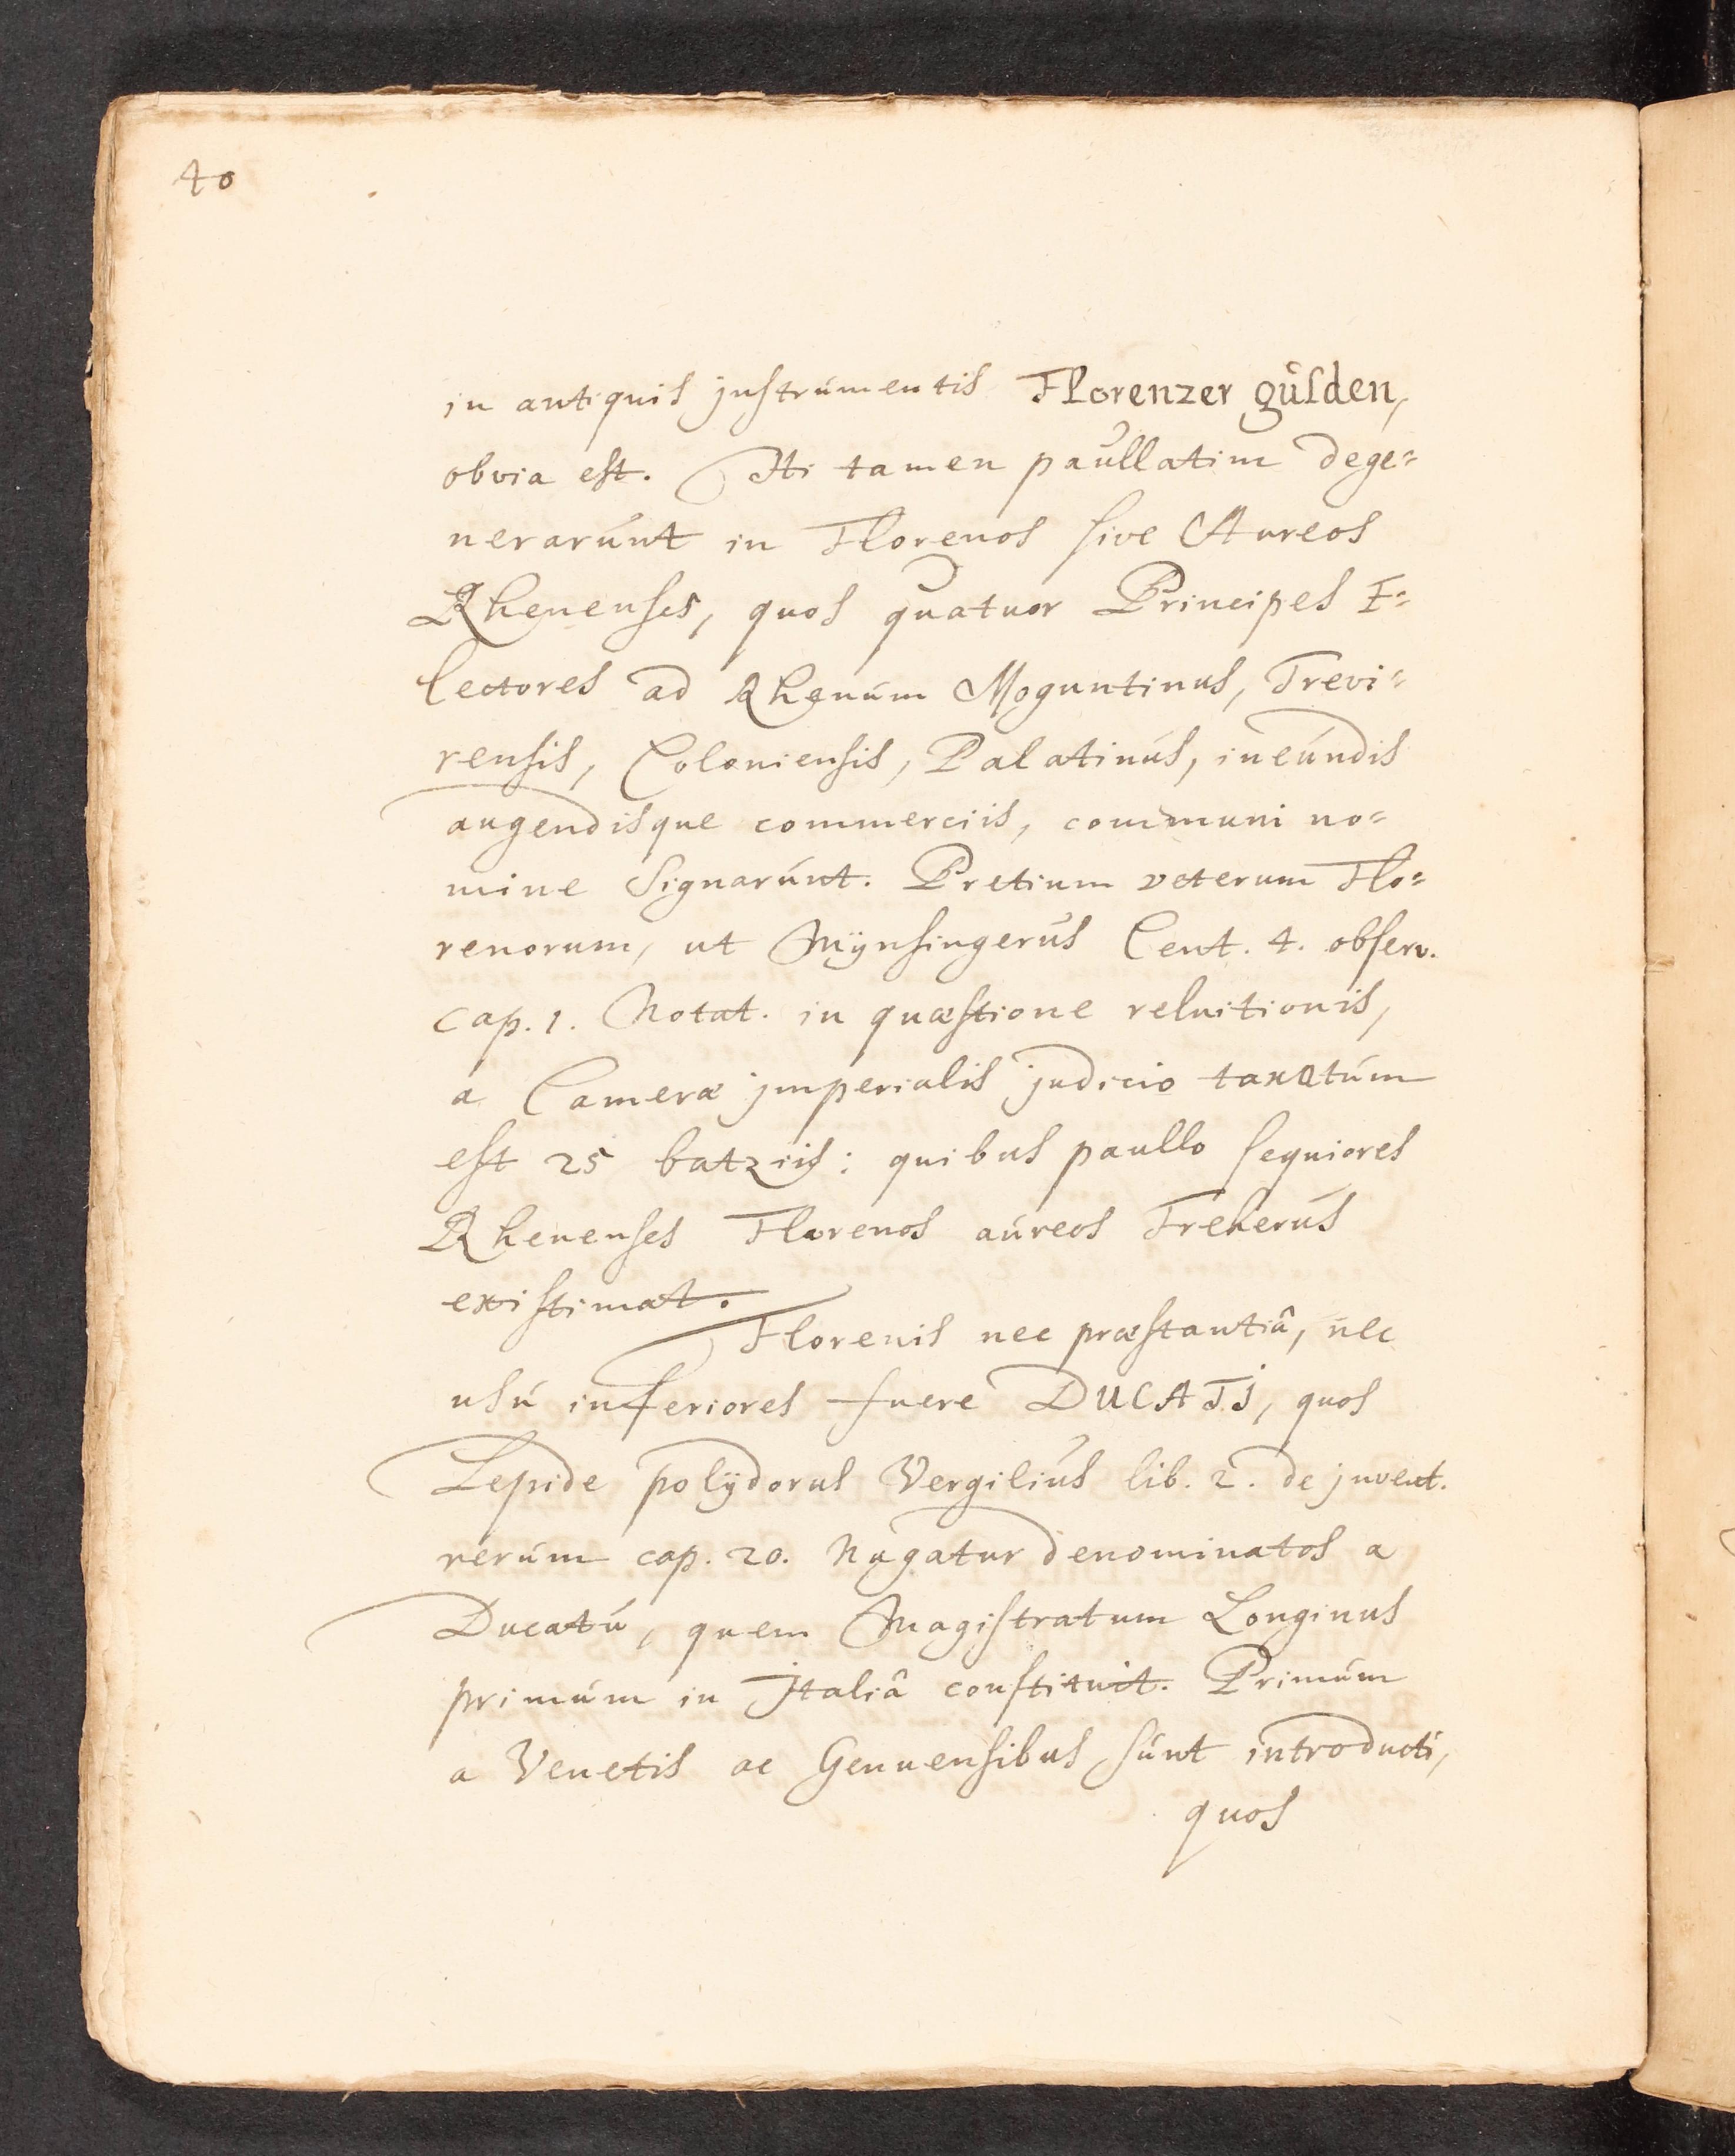 40
in antiquis jnstrúmentis Florenzer gúlden,
obvia est. Hi tamen paúllatim dege=
nerarúnt in Florenos sive Aureos
Rhenenses, quos quatuor Principes E=
lectores ad Rhenúm Moguntinus, Trevi=
rensis, Coloniensis, Palatinús, ineúndis
augendisque commerciis, communi no=
mine signarúnt. Pretium veterum Flo=
renorum, ut Mÿnsingerús Cent. 4. observ.
cap. 1. Notat. in quæstione reluitionis,
a Cameræ jmperialis judicio taxatúm
est 25 batziis: quibus paullo sequiores
Rhenenses Florenos aúreos Freherús
existimat.
Florenis nec præstantiâ, nec
usú inferiores fuere DUCATI, quos
Lepide polÿdorus Vergiliús lib. 2. de jnvent.
rerúm cap. 20. Nugatur denominatos a
Ducatú, quem Magistratum Longinus
primúm in Jtaliâ constituit. Primúm
a Venetis ac Genuensibus súnt introducti,
quos